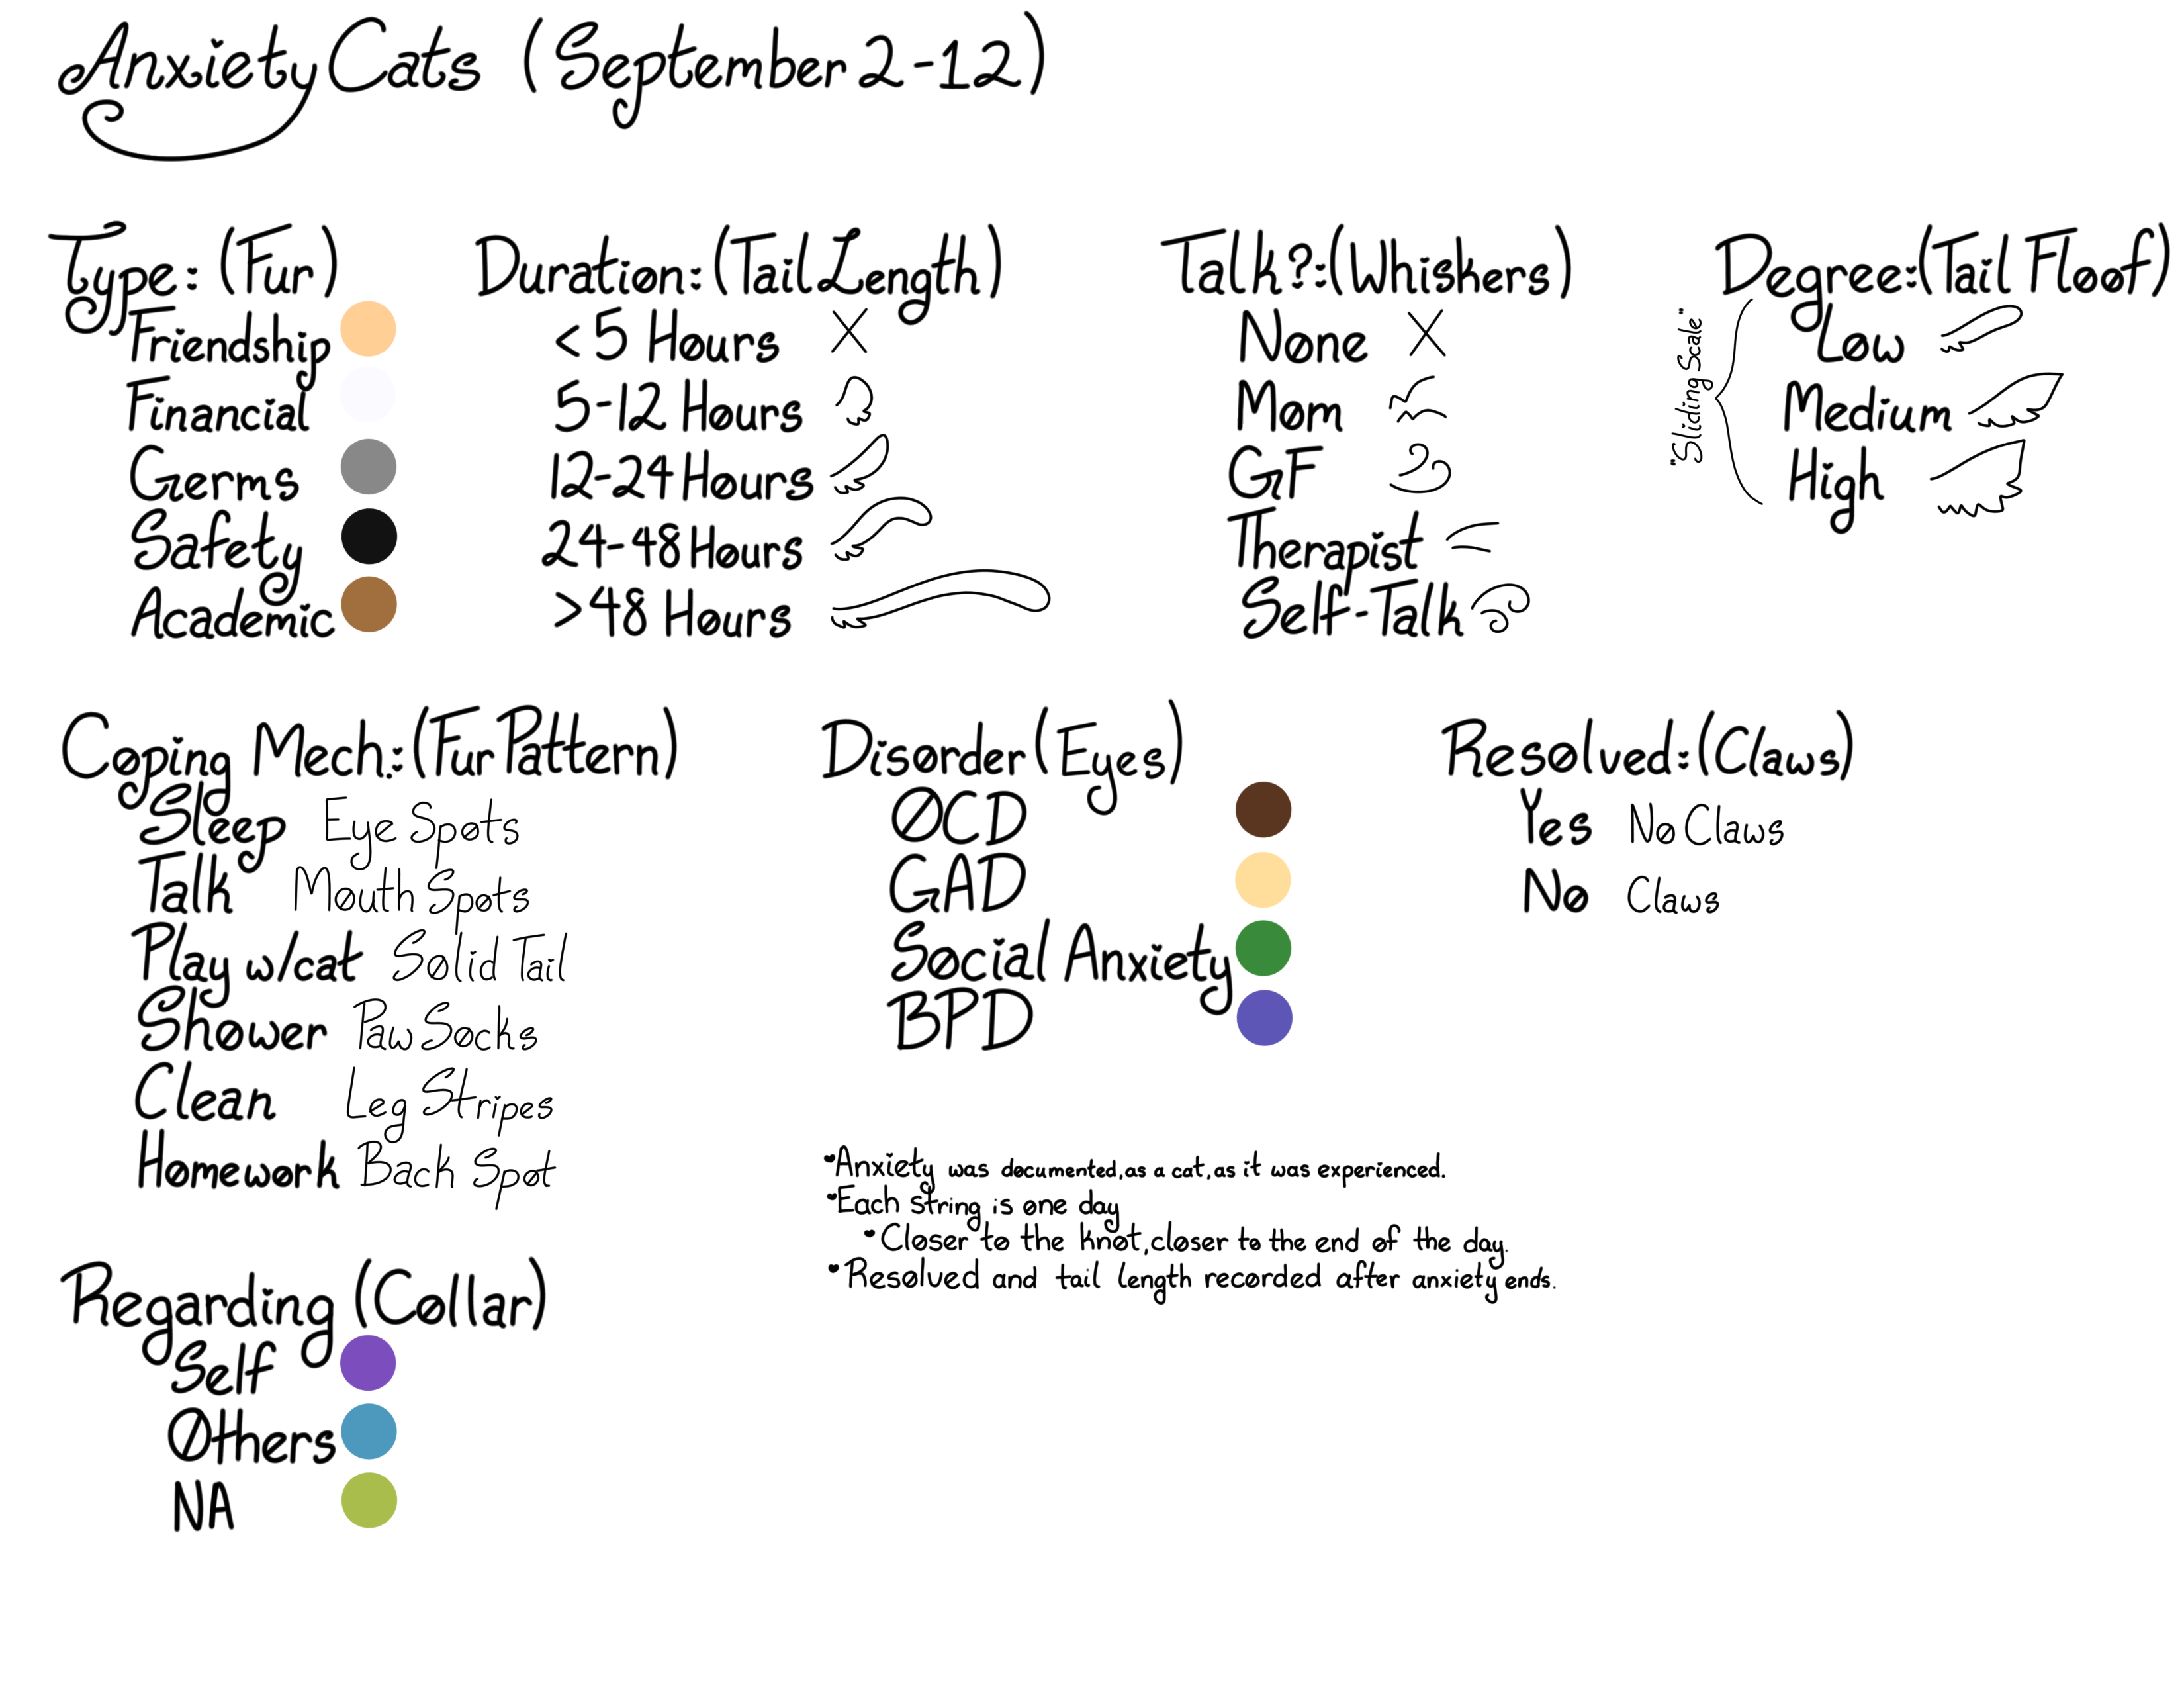 Anxiety Cats (September 2-12)
Type: (Fur)
Friendship
Financial
Germs
Safety
Academic
Duration: (Tail Length)
< 5 Hours
5-12 Hours
12-24 Hours
24-48 Hours
>48 Hours
Talk?: (Whiskers)
None
Mom
GF
Therapist
Self-Talk
Degree: (Tail Floof)
"Sliding Scale"
Low
Medium
High
Coping Mech.: (Fur Pattern)
Sleep Eye Spots
Talk Mouth Spots
Play w/cat Solid Tail
Shower Paw Socks
Clean Leg Stripes
Homework Back Spot
Disorder (Eyes)
OCD
GAD
Social Anxiety
BPD
Resolved: (Claws)
Yes No Claws
No Claws
Anxiety was documented, as a cat, as it was experienced.
Each string is one day
Closer to the knot, closer to the end of the day.
Resolved and tail length recorded after anxiety ends.
Regarding (Collar)
Self
Others
NA